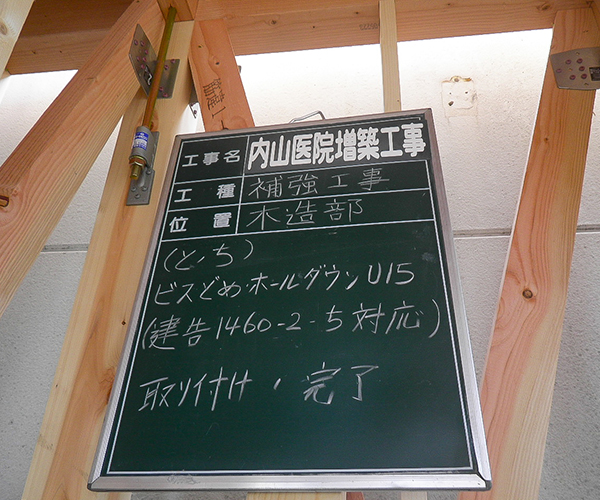 工事名 内山医院増築工事
工種 補強工事
位置 木造部
(と、ち)
ビスどめ・ホールダウンU15
(建告1460-2-5対応)
取り付け、完了